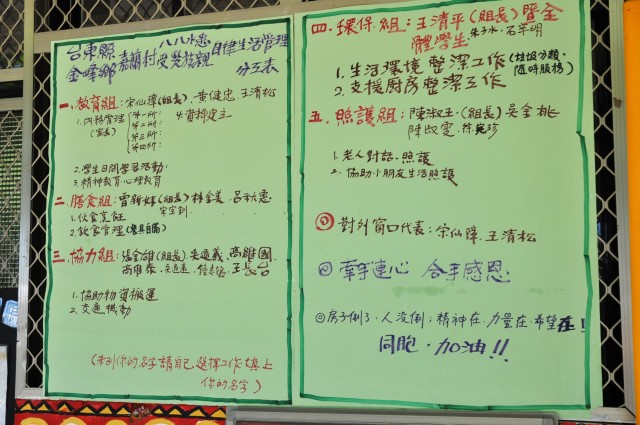 台東縣
金峰鄉嘉蘭村受災族親
八八水患
自律生活管理
分工表
一. 教育組：宋仙璋(組長).黃健忠.王清松
1.內務管理
(室長)
第一所：
第二所：
第三所：
第四所：
4.資料建立
2.學生日間學習活動
3.精神教育心理教育
二. 膳食組：曾新妹(組長)林金美.呂秋惠
1.伙食烹飪
2.飲食管理(餐具自備)
三. 協力組：張金雄(組長)
高雄國
王長台
1.協助物資搬運
2.交通機動
(未列你的名字請自己選擇工作填上
你的名字)
四. 環保組：王清平(組長)暨全
體學生
1.生活環境整潔工作(垃圾分類
隨時服務)
2.支援廚房整潔工作
五. 照護組：陳淑玉.(組長)吳金桃
陳淑雯.徐宛珍
1.老人對話.照護
2.協助小朋友生活照護
◎對外窗口代表：宋仙璋.王清松
◎牽手連心 合手感恩
◎房子倒了.人沒倒；精神在.力量在.希望在！
同胞.加油!!